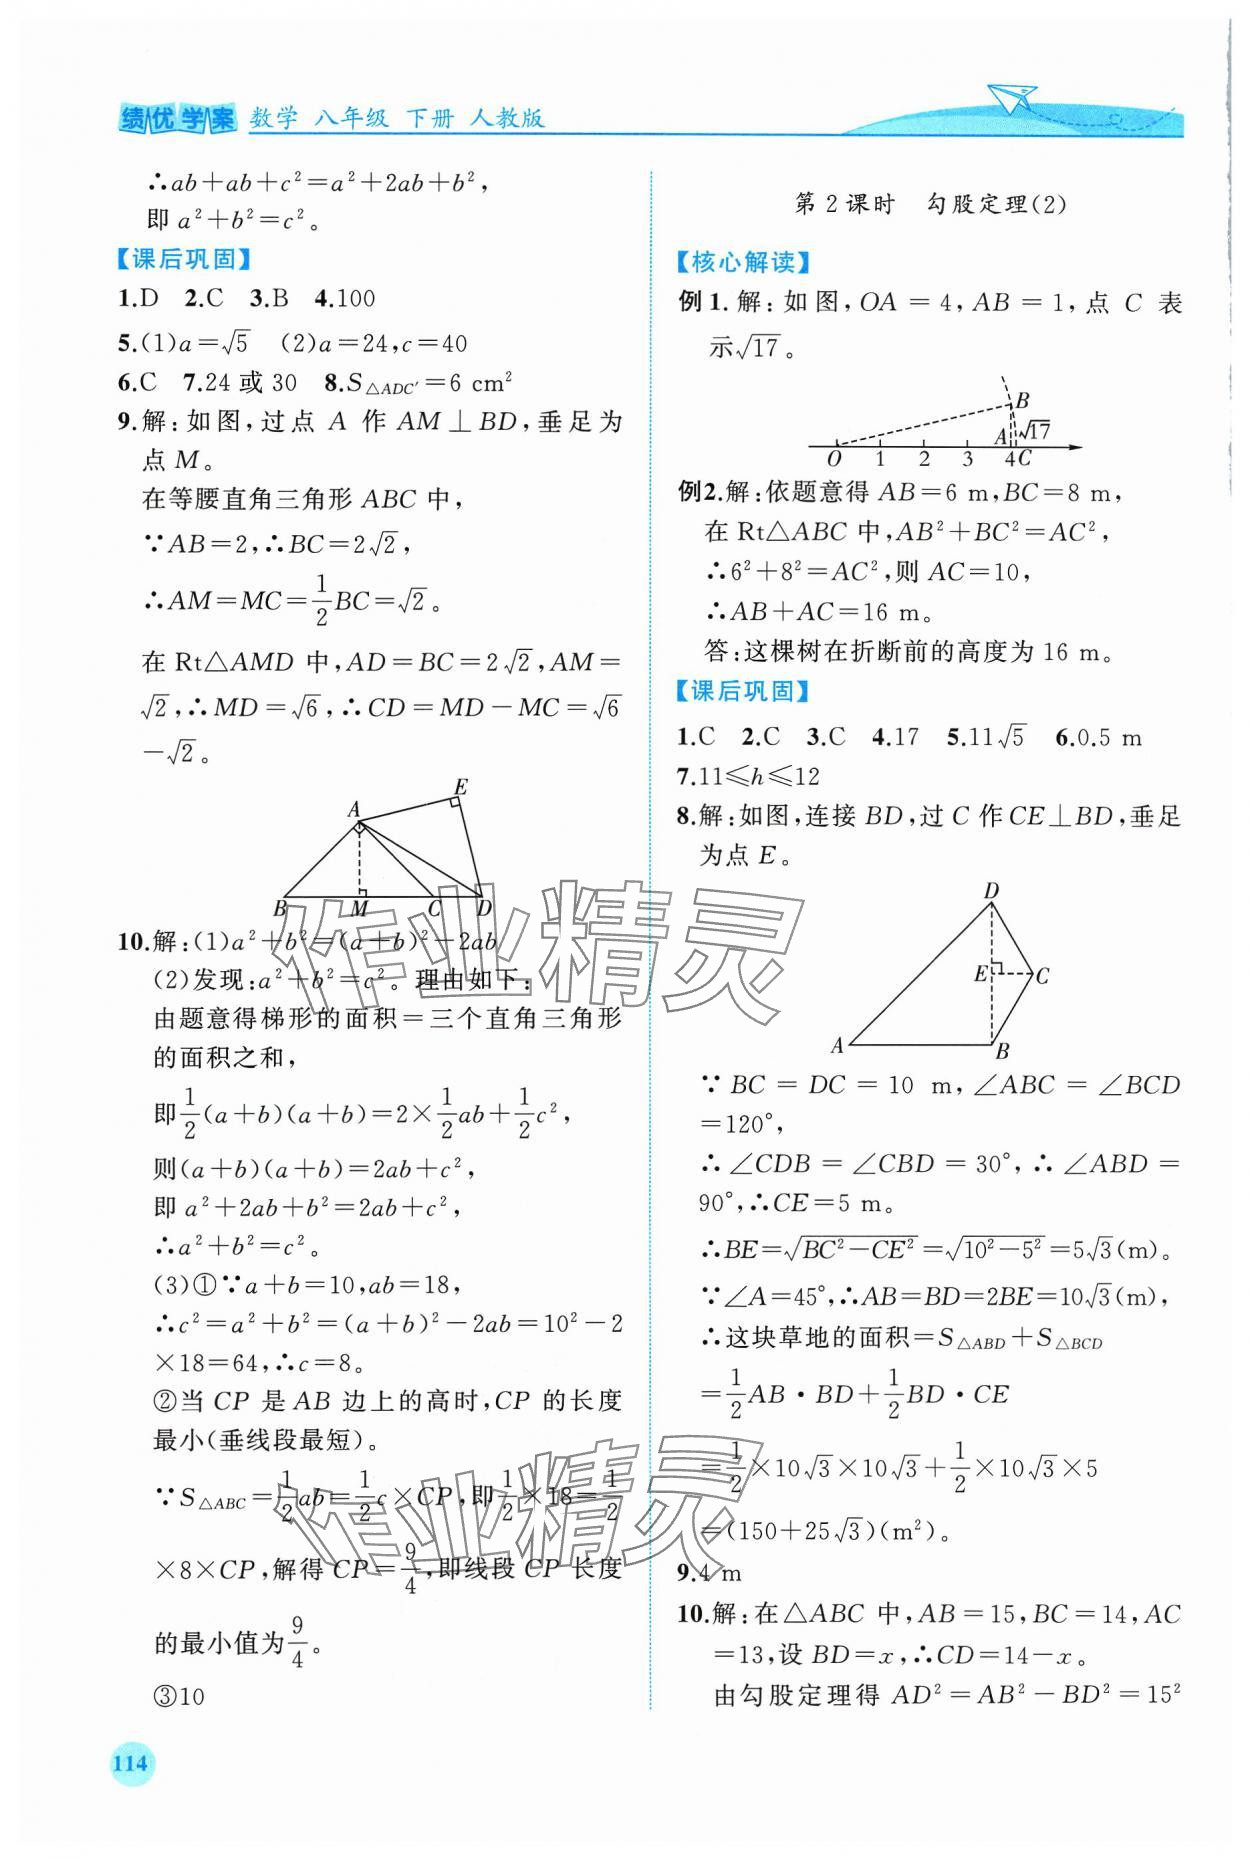 绩优学案 数学 八年级 下册 人教版
∴ab+ab+c²=a²+2ab+b²,
即 a²+b²=c²。
【课后巩固】
1.D 2.C 3.B 4.100
5.(1)a=√5 (2)a=24,c=40
6.C 7.24 或 30 8.S△ADC′=6 cm²
9.解:如图,过点 A 作 AM⊥BD,垂足为
点 M。
在等腰直角三角形 ABC 中,
∵AB=2,∴BC=2√2,
∴AM=MC=1/2BC=√2。
在 Rt△AMD 中,AD=BC=2√2,AM=
√2,∴MD=√6,∴CD=MD-MC=√6
-√2。
E
A
B M C D
10.解:(1)a²+b²=(a+b)²-2ab
(2)发现:a²+b²=c²。理由如下:
由题意得梯形的面积=三个直角三角形
的面积之和,
即1/2(a+b)(a+b)=2×1/2ab+1/2c²,
则(a+b)(a+b)=2ab+c²,
即 a²+2ab+b²=2ab+c²,
∴a²+b²=c²。
(3)①∵a+b=10,ab=18,
∴c²=a²+b²=(a+b)²-2ab=10²-2
×18=64,∴c=8。
②当 CP 是 AB 边上的高时,CP 的长度
最小(垂线段最短)。
∵S△ABC=1/2ab=1/2c×CP,即1/2×18=1/2
×8×CP,解得 CP=9/4,即线段 CP 长度
的最小值为9/4。
③10
114
第 2 课时 勾股定理(2)
【核心解读】
例 1.解:如图,OA=4,AB=1,点 C 表
示√17。
B
A √17
O 1 2 3 4C
例2.解:依题意得 AB=6 m,BC=8 m,
在 Rt△ABC 中,AB²+BC²=AC²,
∴6²+8²=AC²,则 AC=10,
∴AB+AC=16 m。
答:这棵树在折断前的高度为 16 m。
【课后巩固】
1.C 2.C 3.C 4.17 5.11√5 6.0.5 m
7.11≤h≤12
8.解:如图,连接 BD,过 C 作 CE⊥BD,垂足
为点 E。
D
E C
A B
∵BC=DC=10 m,∠ABC=∠BCD
=120°,
∴∠CDB=∠CBD=30°,∴∠ABD=
90°,∴CE=5 m。
∴BE=√(BC²-CE²)=√(10²-5²)=5√3(m)。
∵∠A=45°,∴AB=BD=2BE=10√3(m),
∴这块草地的面积=S△ABD+S△BCD
=1/2AB·BD+1/2BD·CE
=1/2×10√3×10√3+1/2×10√3×5
=(150+25√3)(m²)。
9.4 m
10.解:在△ABC 中,AB=15,BC=14,AC
=13,设 BD=x,∴CD=14-x。
由勾股定理得 AD²=AB²-BD²=15²
作业精灵
作业精灵